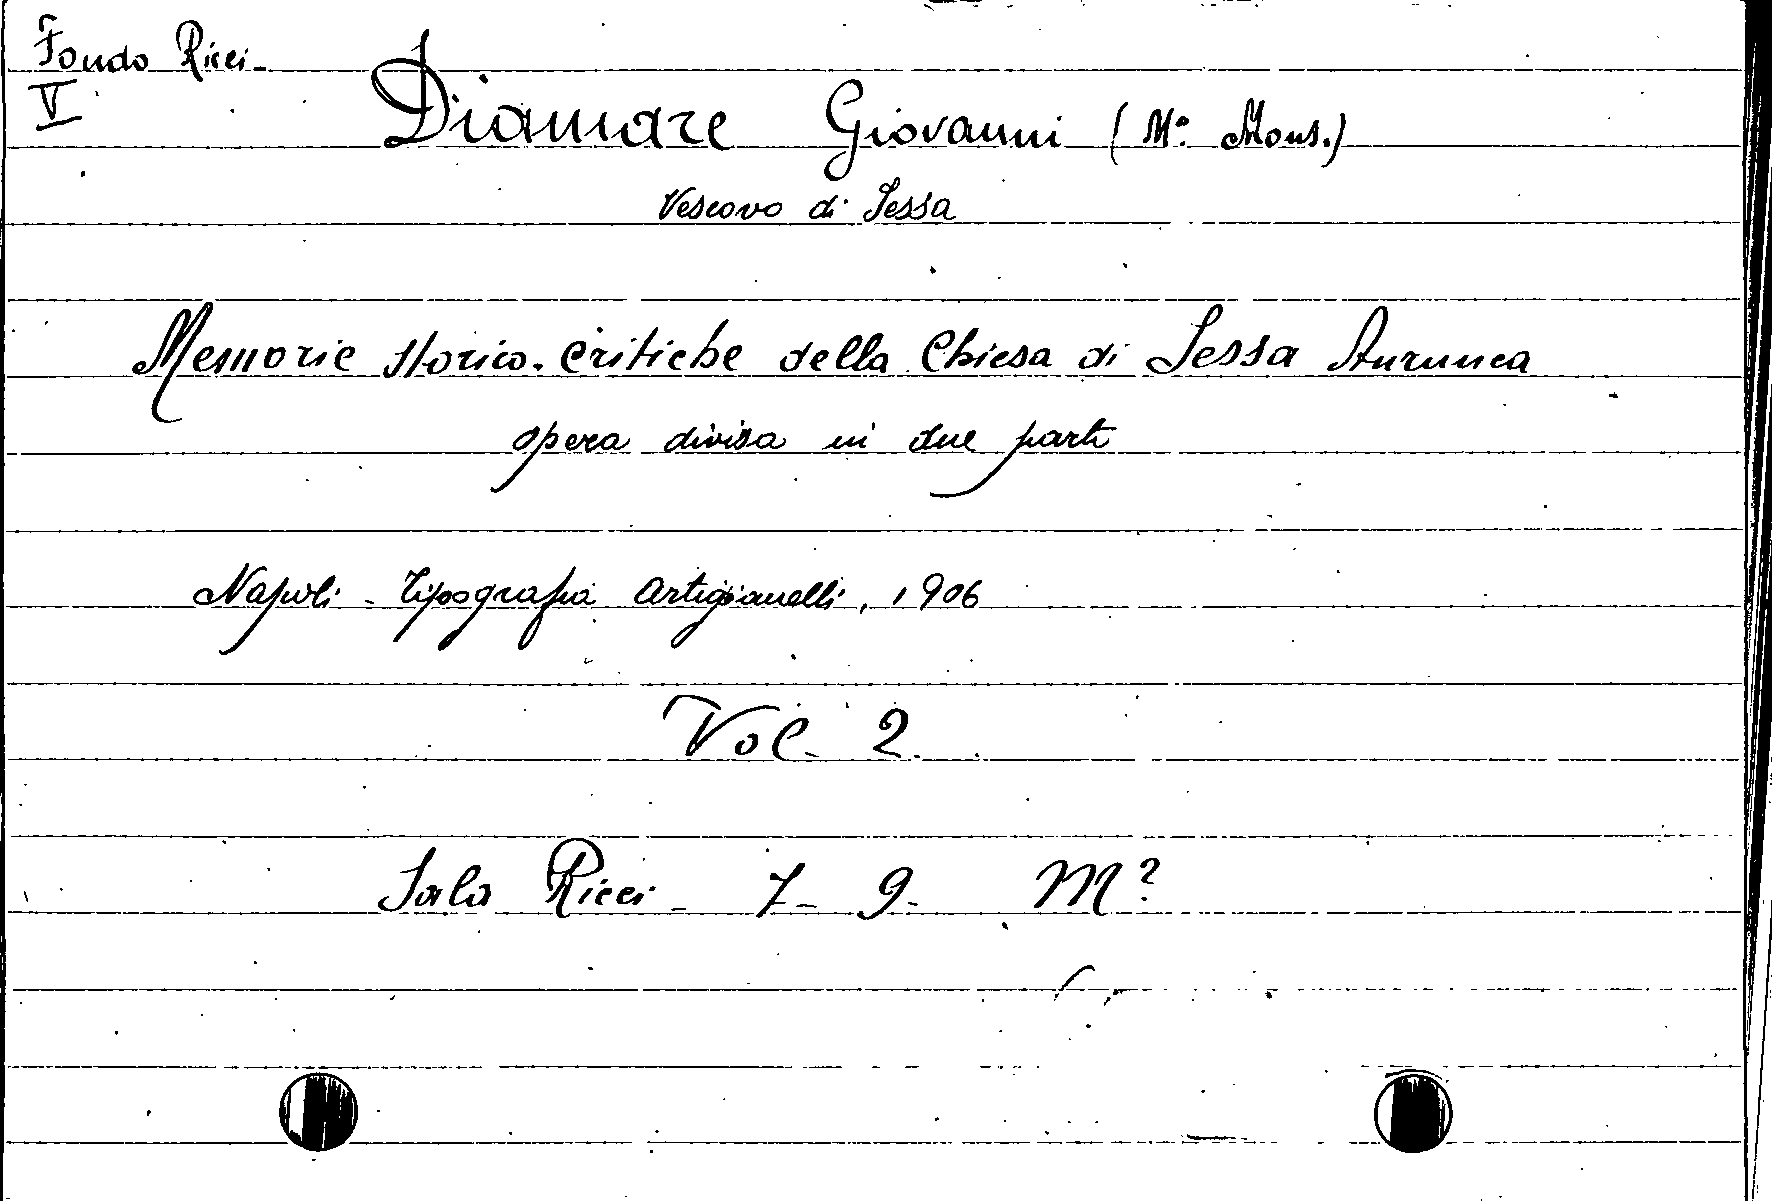 Fondo Ricci-
V
Diamare Giovanni (Mº. Mons.)
Vescovo di Sessa
Memorie storico-critiche della Chiesa di Sessa Aurunca
opera divisa in due parti
Napoli - Tipografia Artigianelli, 1906
Vol. 2.
Sala Ricci - 7- 9- M?